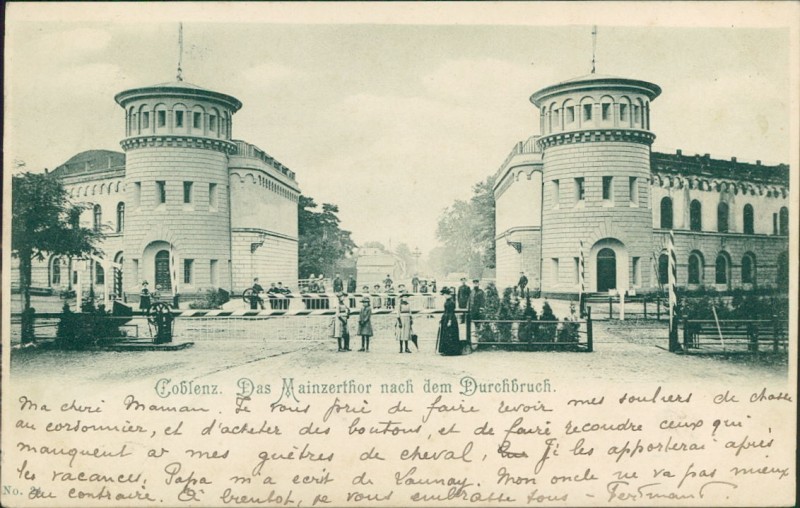 Coblenz. Das Mainzerthor nach dem Durchbruch.
Ma cheri Maman. Je vous prie de faire revoir mes souliers de chasse
au cordonnier, et d'acheter des boutons, et de faire recoudre ceux qui
manquent a mes guêtres de cheval, Ji les apporterai après
les vacances, Papa m'a ecrit de Launay. Mon oncle ne va pas mieux
au contraire. A bientot, je vous embrasse tous –
No. 2